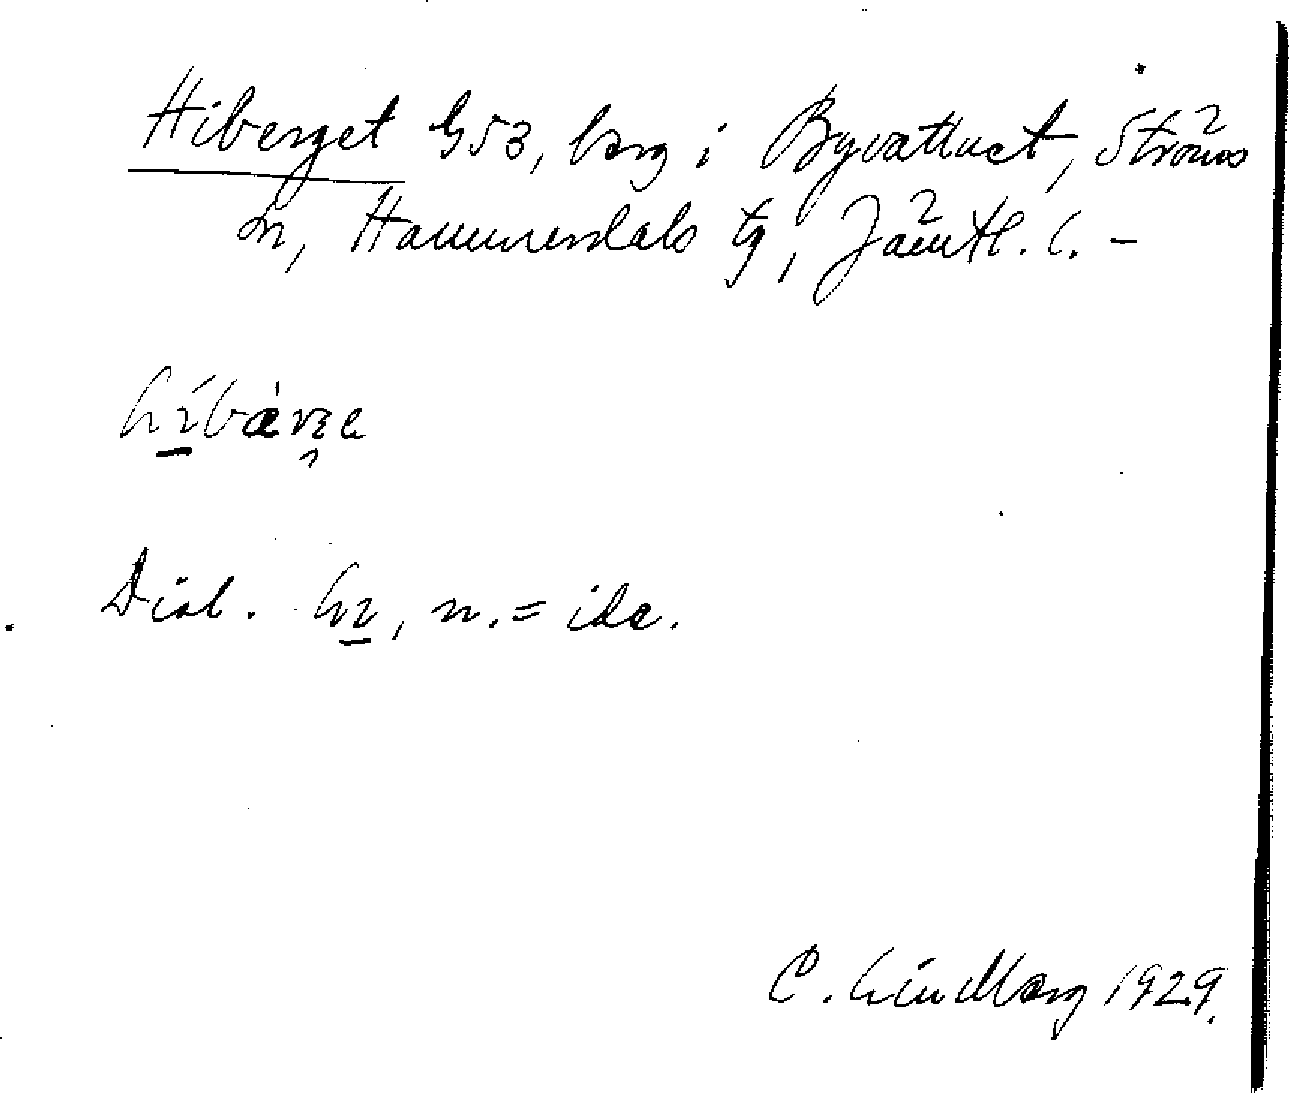 Hiberget G53, berg i Byvattnet, Ströms
sn, Hammerdals tg, Jämtl. l. –
Dial. hı̱, n. = ide.
C. Lindberg 1929.